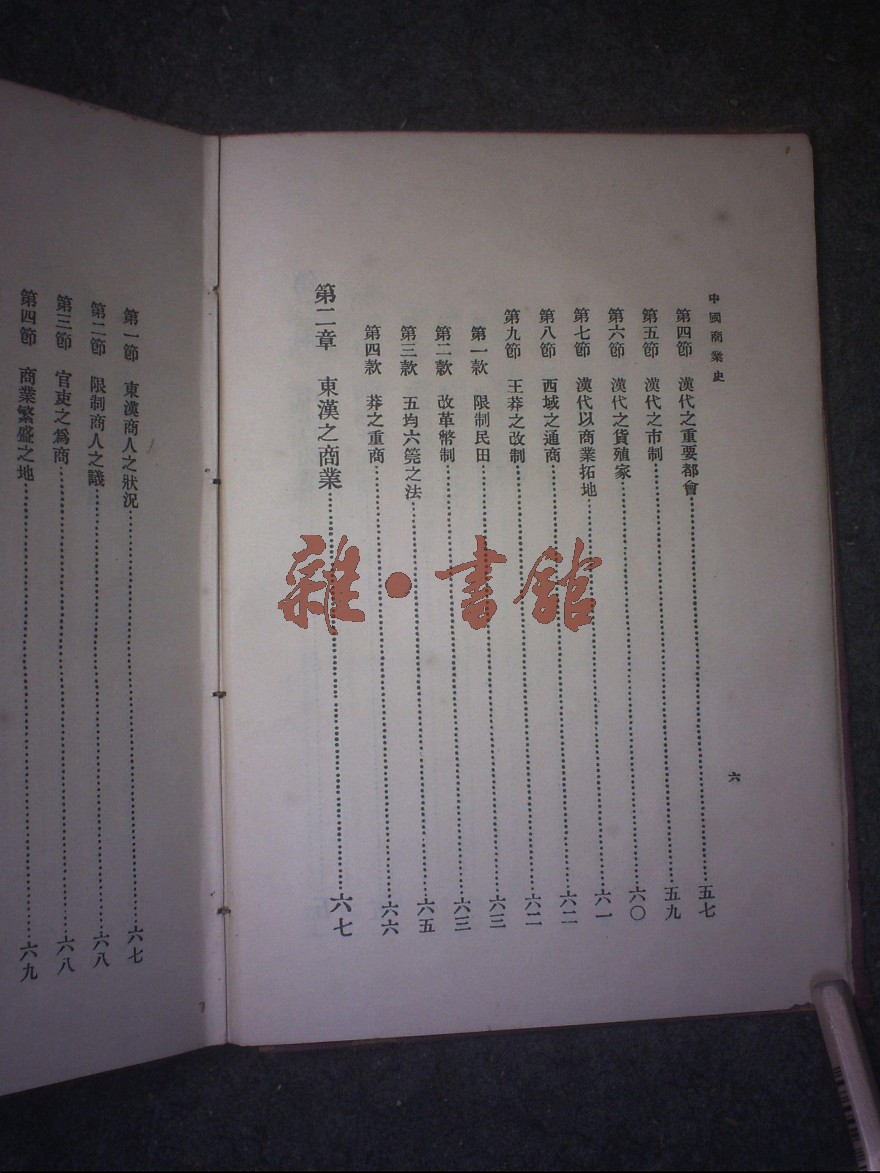 中國商業史
六
第四節 漢代之重要都會……五七
第五節 漢代之市制……五九
第六節 漢代之貨殖家……六〇
第七節 漢代以商業拓地……六一
第八節 西域之通商……六二
第九節 王莽之改制……六二
第一款 限制民田……六三
第二款 改革幣制……六三
第三款 五均六筦之法……六五
第四款 莽之重商……六六
第二章 東漢之商業……六七
第一節 東漢商人之狀況……六七
第二節 限制商人之議……六八
第三節 官吏之爲商……六八
第四節 商業繁盛之地……六九
雜·書館